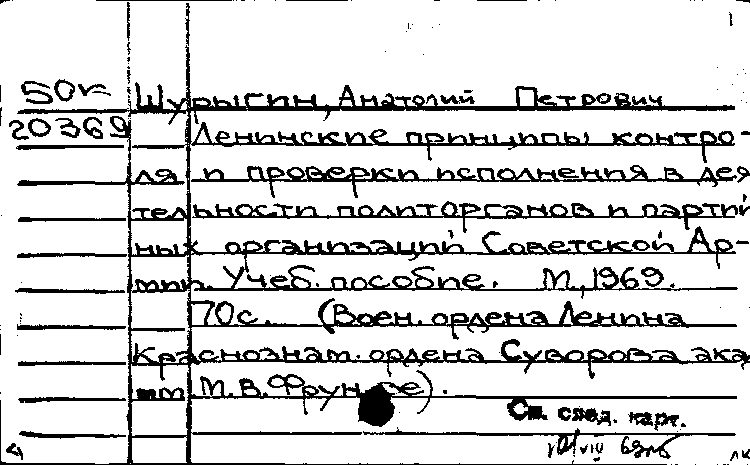 50к Шурыгин, Анатолий Петрович
20369 Ленинские принципы контро-
ля и проверки исполнения в дея
тельности политорганов и партий
ных организаций Советской Ар-
мии. Учеб. пособие. М., 1969.
70с. (Воен. ордена Ленина
Краснознам. ордена Суворова ака
им М.В. Фрунзе).
См. след. карт.